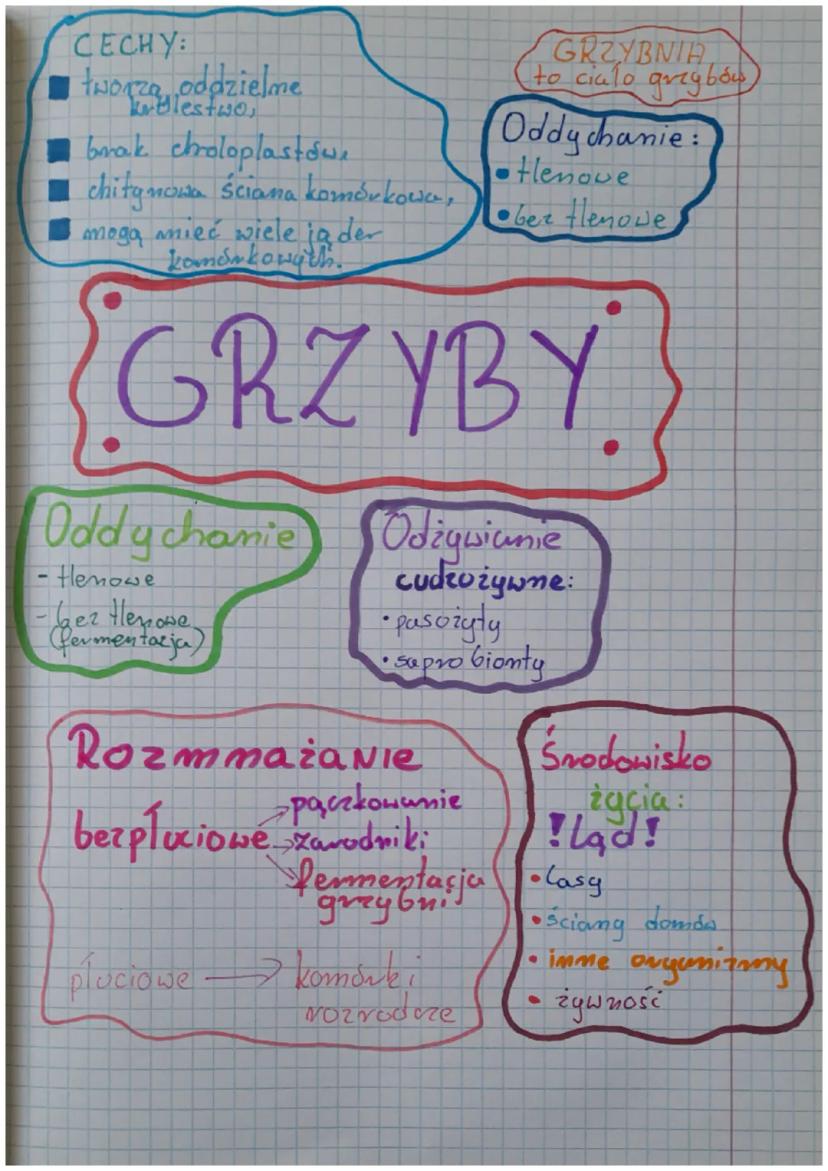 CECHY:
tworzą oddzielne
królestwo,
brak choloplastów,
chitynowa ściana komórkowa,
mogą mieć wiele jąder
komórkowych.
GRZYBNIA
to ciało grzybów
Oddychanie:
• tlenowe
• beztlenowe
GRZYBY
Oddychanie
- tlenowe
- beztlenowe
(fermentacja)
Odżywianie
cudzożywne:
• pasożyty
• saprobionty
Rozmnażanie
pączkowanie
bezpłciowe → zarodniki
fermentacja
grzybni
płciowe → komórki
rozrodcze
Środowisko
życia:
! Ląd !
• lasy
• ściany domów
• inne organizmy
• żywność